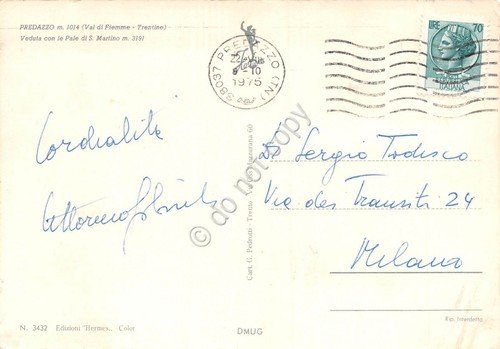 PREDAZZO m. 1014 (Val di Fiemme - Trentino)
Veduta con le Pale di S. Martino m. 3191
38037 PREDAZZO (TN)
9 - 10
1975
LIRE 70
ITALIANA
Cordialità
Sergio Todisco
Via dei Transiti 24
Milano
Cart. G. Pedrotti - Trento Maccarana 60
© do not copy
N. 3432 Edizioni "Hermes„ - Color
DMUG
Rip. Interdetta